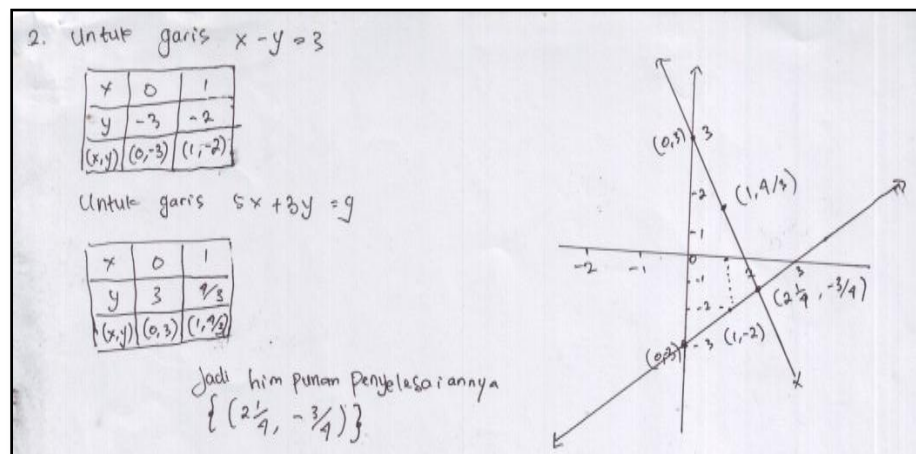 2. Untuk garis x - y = 3
x 0 1
y -3 -2
(x,y) (0,-3) (1,-2)
Untuk garis 5x + 3y = 9
x 0 1
y 3 4/3
(x,y) (0,3) (1,4/3)
Jadi himpunan penyelesaiannya
{(2 1/4, -3/4)}
(0,3) 3
(1,4/3)
2
1
-2 -1 0 2 3
-1
(2 1/4, -3/4)
-2
(1,-2)
-3